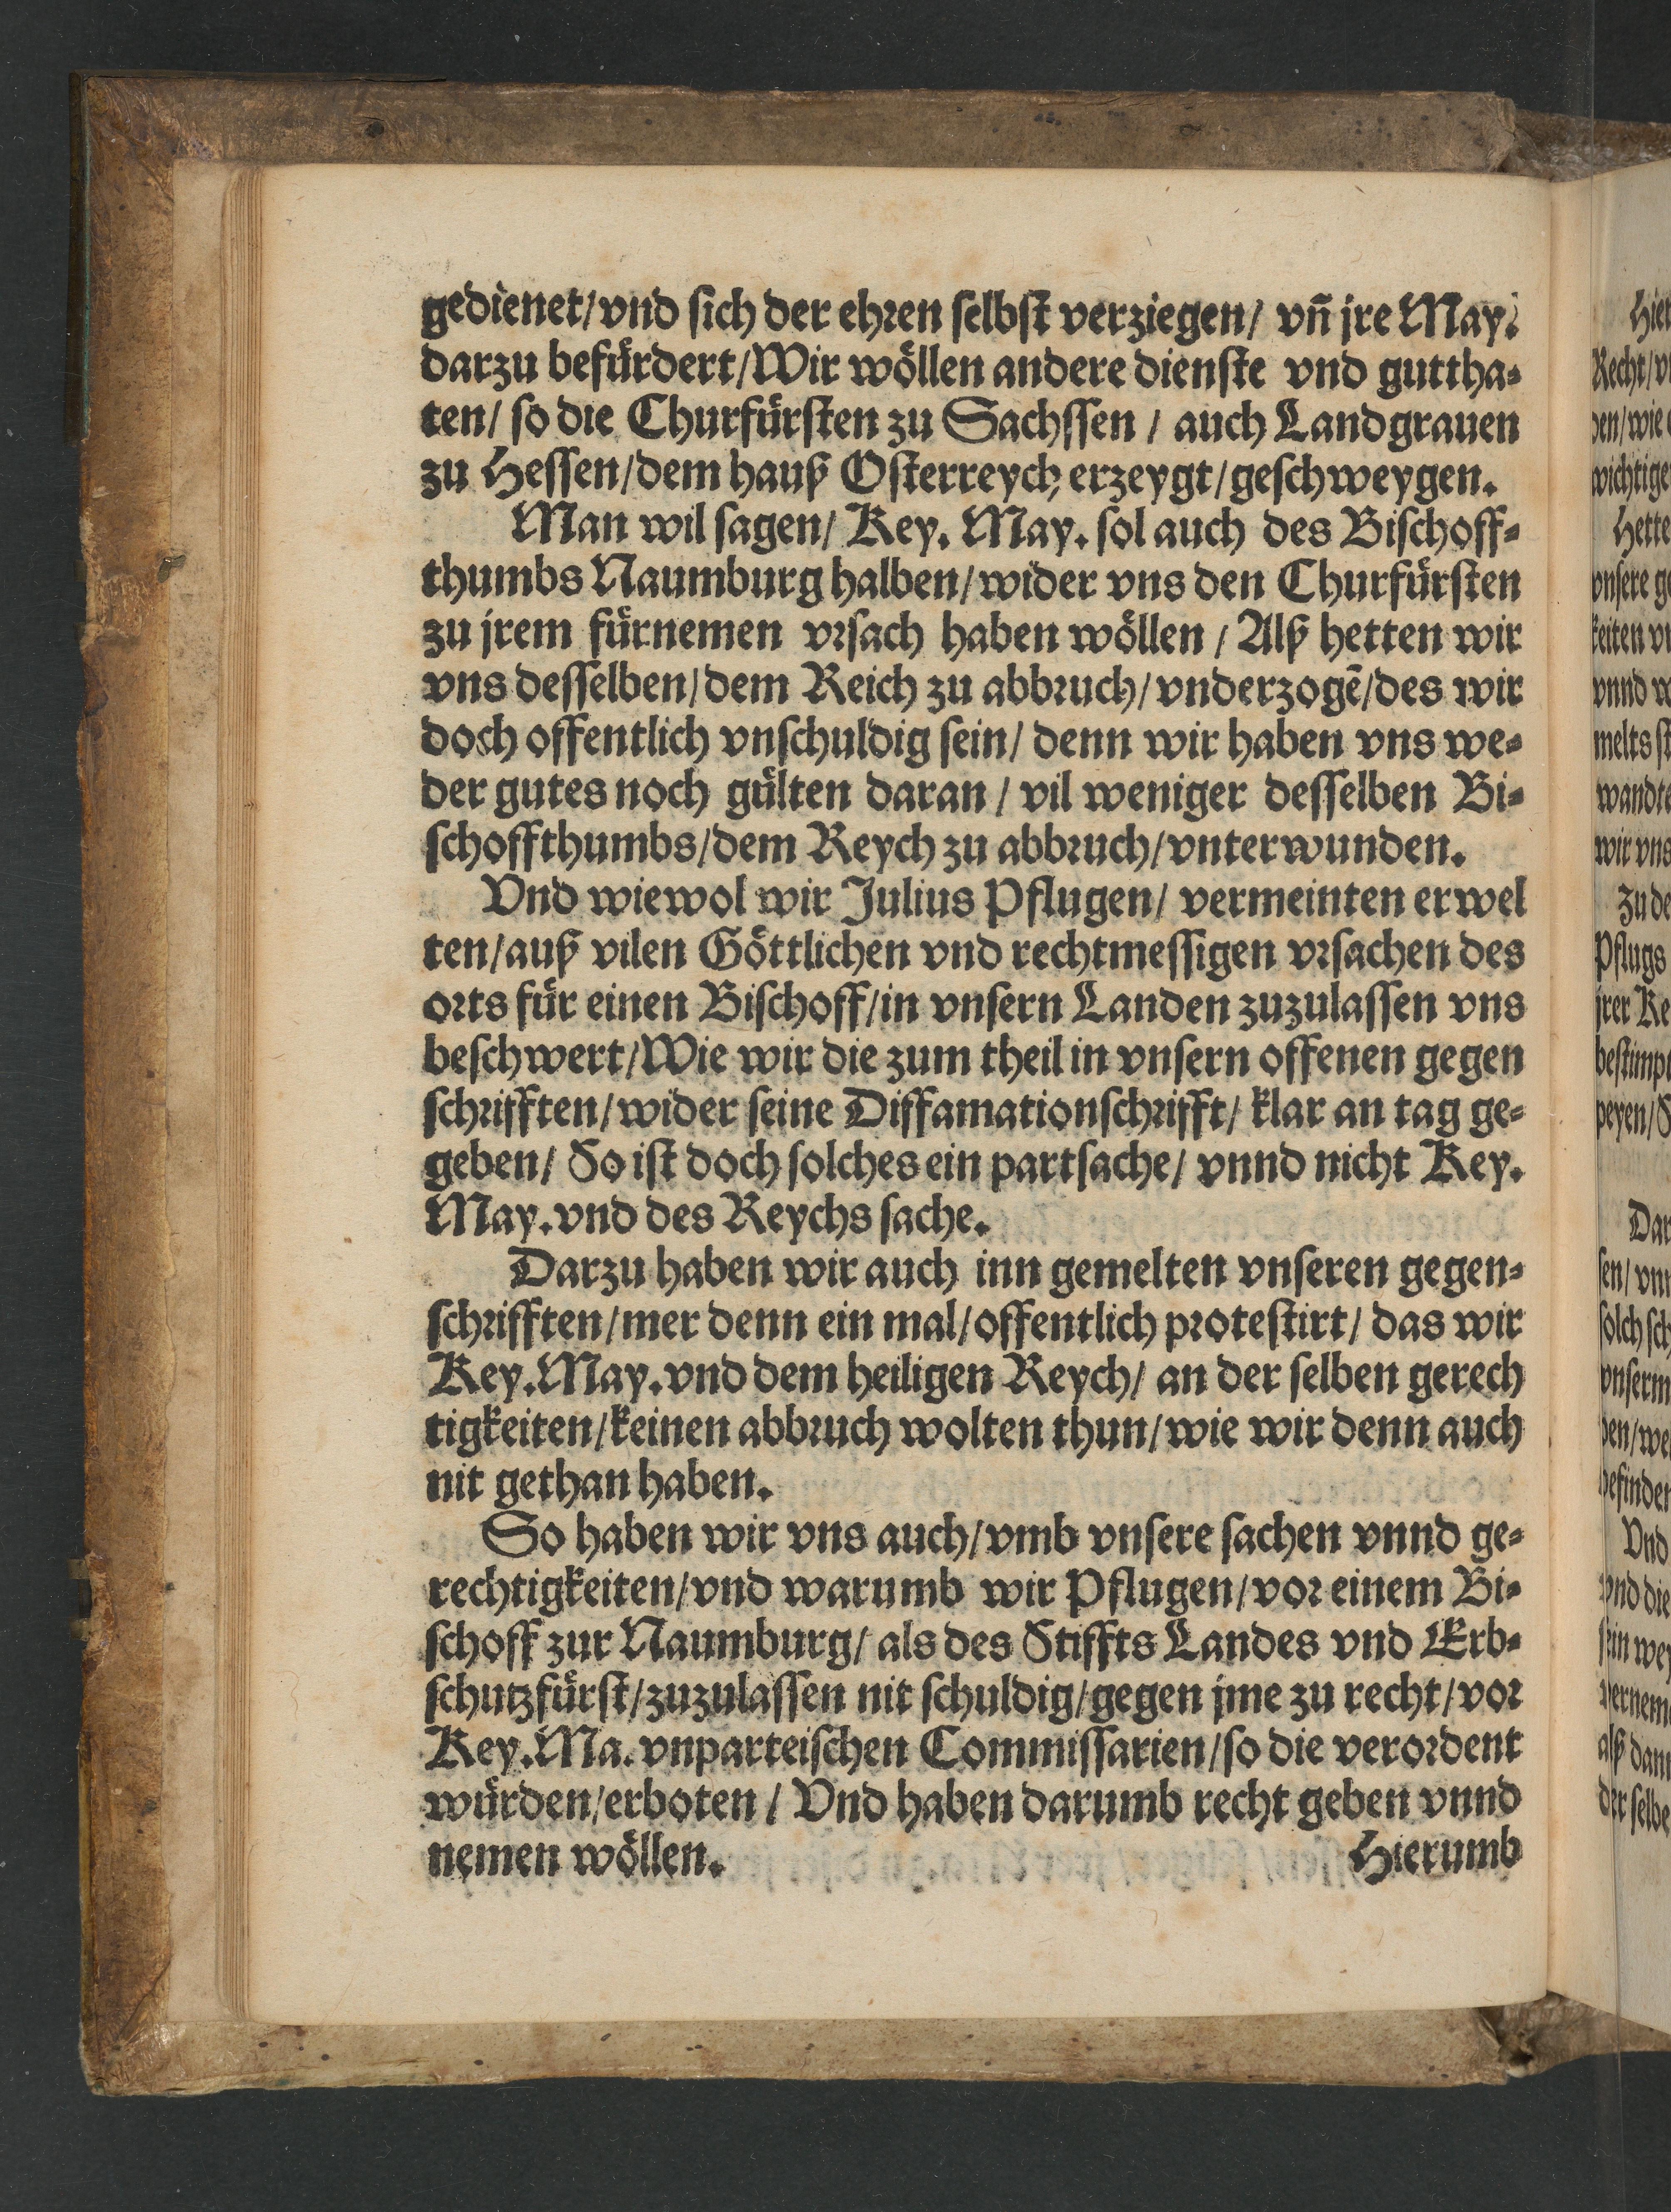 gedienet/vnd sich der ehren selbst verziegen/ vn̄ jre May.
darzu befürdert/Wir wöllen andere dienste vnd guttha-
ten/ so die Churfürsten zu Sachssen / auch Landgrauen
zu Hessen/dem hauß Osterreych erzeygt/geschweygen.
Man wil sagen/ Key. May. sol auch des Bischoff-
thumbs Naumburg halben/wider vns den Churfürsten
zu jrem fürnemen vrsach haben wöllen / Alß hetten wir
vns desselben/dem Reich zu abbruch/vnderzogē/des wir
doch offentlich vnschuldig sein/ denn wir haben vns we-
der gutes noch gülten daran / vil weniger desselben Bi-
schoffthumbs/dem Reych zu abbruch/vnterwunden.
Vnd wiewol wir Julius Pflugen/ vermeinten erwel
ten/auß vilen Göttlichen vnd rechtmessigen vrsachen des
orts für einen Bischoff/in vnsern Landen zuzulassen vns
beschwert/Wie wir die zum theil in vnsern offenen gegen
schrifften/wider seine Diffamationschrifft/ klar an tag ge-
geben/ So ist doch solches ein partsache/ vnnd nicht Key.
May.vnd des Reychs sache.
Darzu haben wir auch inn gemelten vnseren gegen-
schrifften/mer denn ein mal/offentlich protestirt/ das wir
Key.May.vnd dem heiligen Reych/ an der selben gerech
tigkeiten/keinen abbruch wolten thun/wie wir denn auch
nit gethan haben.
So haben wir vns auch/vmb vnsere sachen vnnd ge-
rechtigkeiten/vnd warumb wir Pflugen/vor einem Bi-
schoff zur Naumburg/ als des Stiffts Landes vnd Erb-
schutzfürst/zuzulassen nit schuldig/gegen jme zu recht/vor
Key.Ma.vnparteischen Commissarien/so die verordent
würden/erboten / Vnd haben darumb recht geben vnnd
nemen wöllen. Hierumb